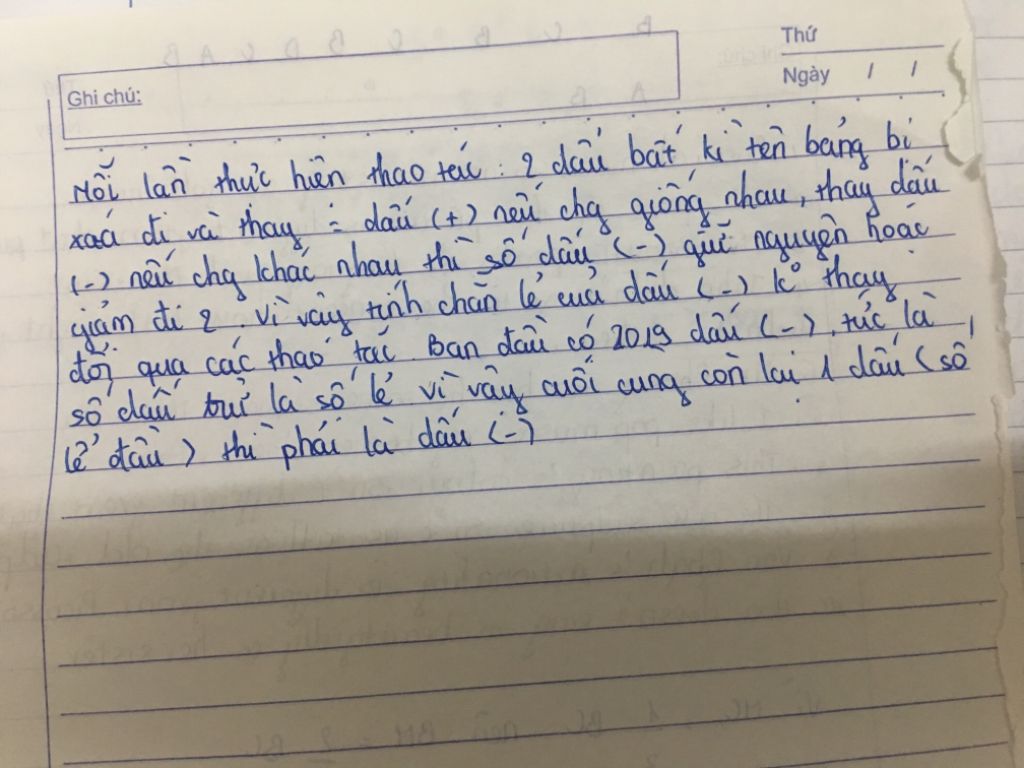 Thứ
Ngày / /
Ghi chú:
Mỗi lần thực hiện thao tác : 2 dấu bất kì tên bảng bị
xoá đi và thay = dấu (+) nếu chg giống nhau, thay dấu
(-) nếu chg khác nhau thì số dấu (-) giữ nguyên hoặc
giảm đi 2 . Vì vậy tính chẵn lẻ của dấu (-) k° thay
đổi qua các thao tác. Ban đầu có 2019 dấu (-), tức là
số dấu trừ là số lẻ vì vậy cuối cùng còn lại 1 dấu (số
lẻ đầu) thì phải là dấu (-)